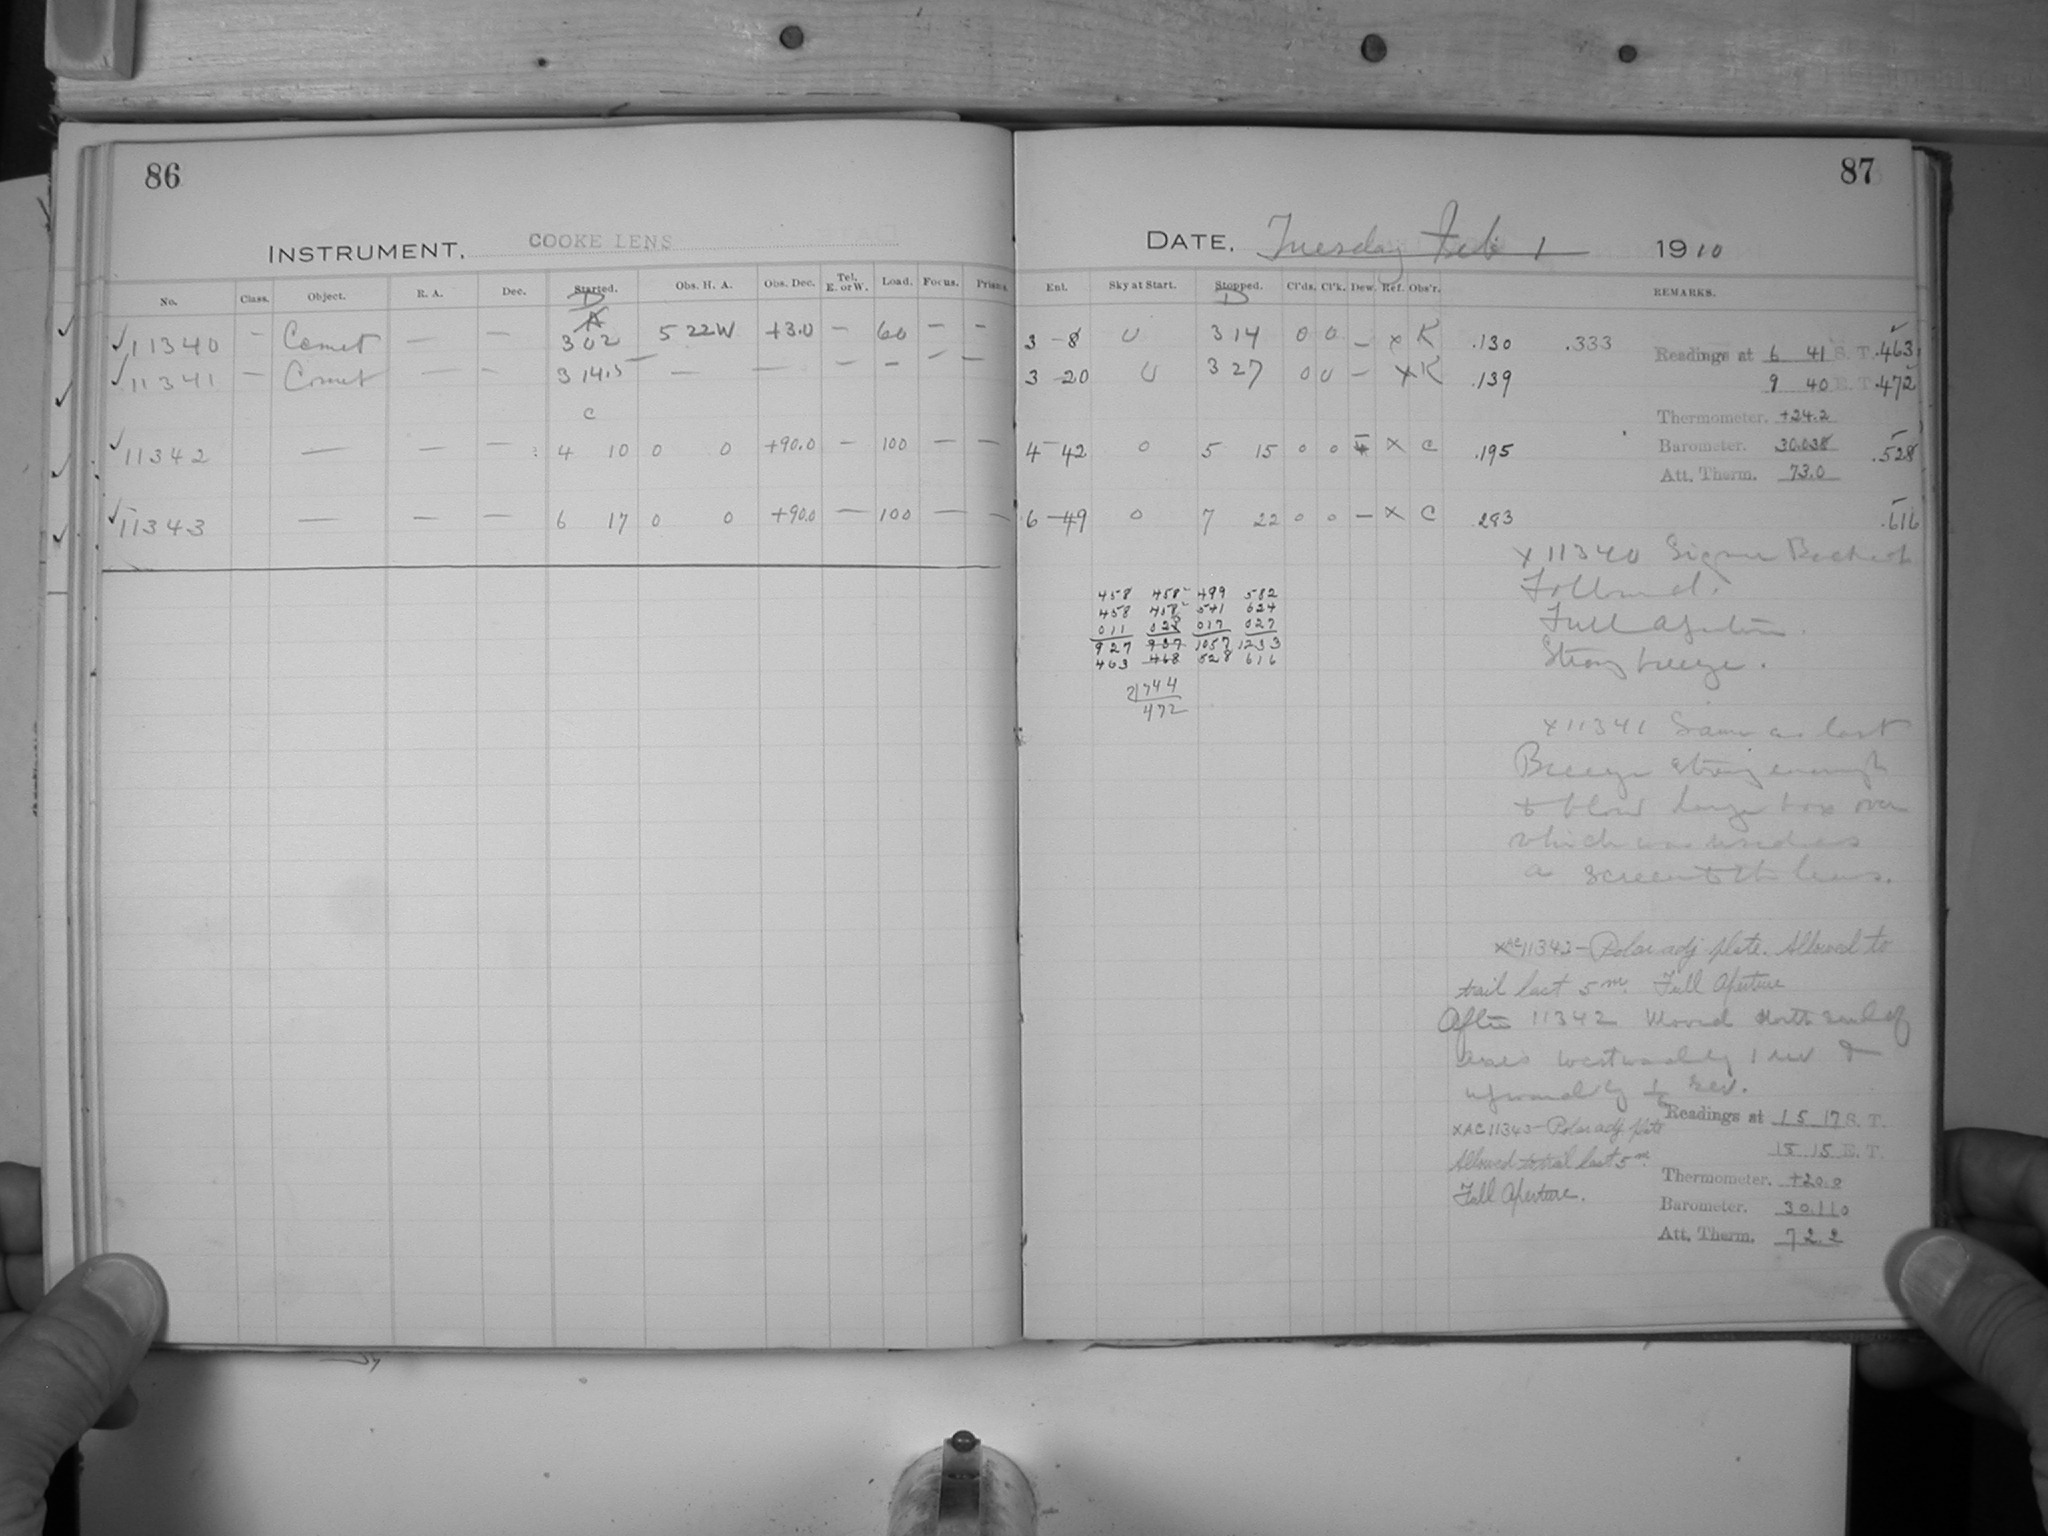 86
INSTRUMENT, COOKE LENS
No. Class. Object. R. A. Dec. Started. Obs. H. A. Obs. Dec. Tel. E. or W. Load. Focus. Prisms.
✓ 11340 – Comet — — 3 02 5 22W +3.0 – 60 – –
✓ 11341 — Comet — – 3 14.5 — — – – – –
C
✓ 11342 — – — 4 10 0 0 +90.0 – 100 – —
✓ 11343 — – — 6 17 0 0 +90.0 — 100 — —
87
DATE, Tuesday Feb 1 1910
Ent. Sky at Start. Stopped. Cl'ds. Cl'k. Dew. Ref. Obs'r. REMARKS.
D
3 – 8 U 3 14 0 0 – x K .130 .333 .463
3 – 20 U 3 27 0 0 – x K .139 .472
4 – 42 0 5 15 0 0 x C .195 .528
6 – 49 0 7 22 0 0 – x C .283 .616
Readings at 6 41 S. T.
9 40 E. T.
Thermometer. +24.2
Barometer. 30.038
Att. Therm. 73.0
458 458 499 582
458 458 541 624
011 028 017 027
927 937 1057 1233
463 468 528 616
2)944
472
x 11340
Followed.
Full Aperture.
Strong breeze.
x 11341 Same as last
Breeze strong enough
to blow large box over
which was used as
a screen to the lens.
x AC 11342 – Polar adj. plate. Allowed to
trail last 5m. Full Aperture
After 11342 Moved North end of
axis westwardly 1 rev &
upwardly rev.
x AC 11343 – Polar adj. plate
Allowed to trail last 5m.
Full Aperture.
Readings at 15 17 S. T.
18 15 E. T.
Thermometer. +20.0
Barometer. 30.110
Att. Therm. 72.2